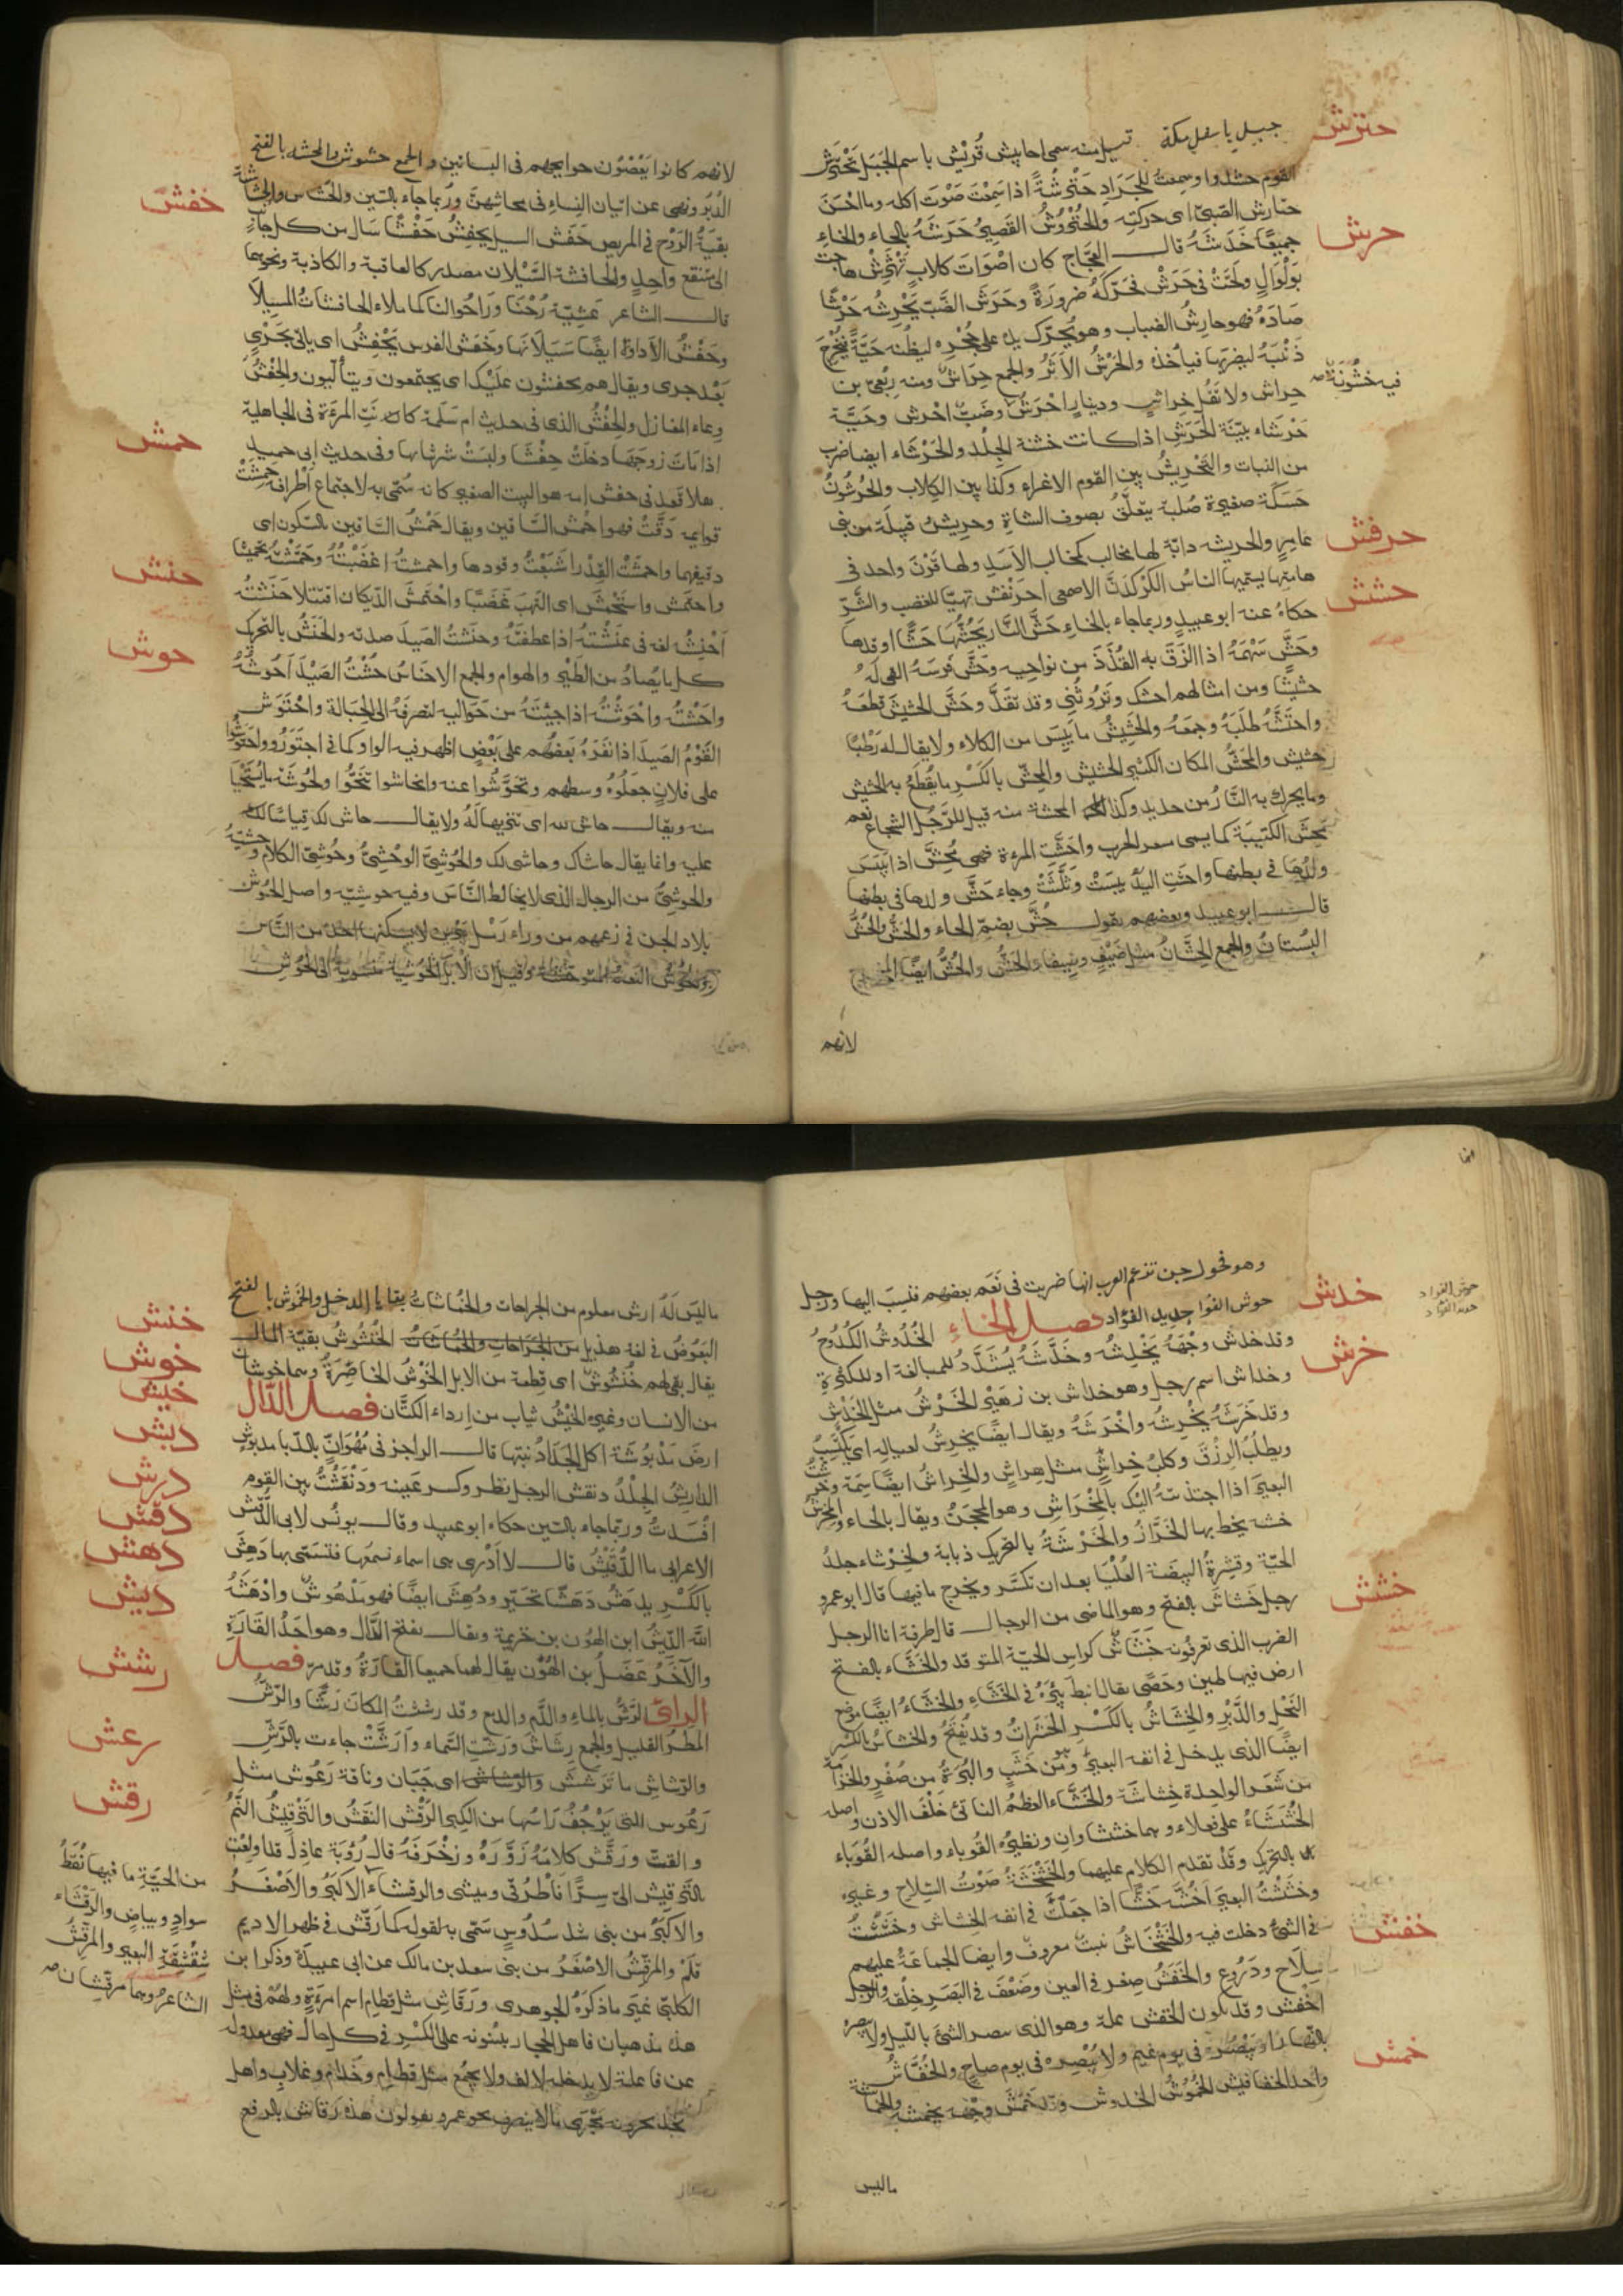 حترش
جبيل باسفل مكة قيل منه سمى احابيش قُريش باسم الجَبَل تَحْتَرَشَ
القوم حشدوا وسمعتُ للجَرَادِ حَتْرَشَةً اذا سَمِعْتَ صَوْتَ اكله وما احْسَنَ
حتارش الصَّبىّ اى حركته والحُتْرُوشُ القَصِيرُ حَرَشَهُ بالحاء والخاءِ
حرش
جميعًا خَدَشَهُ قال العجّاج كان اصْوَاتَ كلابٍ تَهْتَرِشْ هاجت
بوَلْوَالٍ ولَجَّتْ فى حَرَشْ فحَرّكَهُ ضرورَةً وحَرَشَ الضَّبّ يَحْرِشُه حَرْشًا
صَادَهُ فهو حارِشُ الضباب وهو يُحرّك يده على جُحْرِه ليظُنه حَيَّةً فيُخْرِجَ
ذَنَبَهُ ليضربَها فيأخذه والحَرْشُ الاَثَرُ والجمع حِرَاشٌ ومنه رِبْعىّ بن
فيه خشُونَة صح
حِراش ولا تَقُل خِراش ودينارٌ احْرَشُ وضَبٌّ احْرش وحَيَّة
حَرْشاء بيّنَة الحَرَشِ اذا كانت خشنة الجِلْد والحَرْشَاء ايضا ضرب
من النبات والتَحْرِيشُ بين القوم الاغراء وكذا بين الكِلاب والحُرْشُونُ
حَسَكَة صغيرة صُلبَة يتعلَّقُ بصوف الشاةِ وحرِيشٌ قبيلَة من بنى
عامِرٍ والحريش دابّة لها مخالب كمخالب الاَسَدِ ولها قَرْنٌ واحد فى
حرفش
هامتها يسمّيها الناسُ الكَرْكدَنَّ الاصمعى احْرَنْفَشَ تهيّا للغضب والشَّرّ
حشش
حكاهُ عنه ابو عبيدٍ وربما جاء بالخاءِ حَشَّ النَّار يَحُشُّهَا حَشًّا اوقدها
وحَشَّ سَهْمَهُ اذا الزَقَ به القُذَذَ من نواحيه وحَشَّ فَرَسَهُ القى لَهُ
حشيشًا ومن امثالهم احشّك وتَرُوثُنِى وقد تقَدّمَ وحَشَّ الحشيشَ قطَعَهُ
واحتَشَّهُ طلَبَهُ وجمَعَهُ والحَشِيشُ ما يَبِسَ من الكلاء ولا يقال له رَطْبًا
حشيش والمَحَشُّ المكان الكثير الحشيش والمِحَشّ بالكَسْرِ ما يُقْطَعُ به الحشيش
وما يحرك به النَّارُ من حديد وكذلك المحشة منه قيل للرَّجُل الشجاع نعم
مِحَشُّ الكتيبَة كما يسمى مسعر الحرب واحَشَّتِ المرءة فهى مُحِشٌّ اذا يَبِسَ
ولَدُهَا فى بطنها واحشّتِ اليَدُ يبسَتْ وشَلَّتْ وجاء حَشَّ ولدها فى بطنها
قال ابو عبيد وبعضهم يقول حُشَّ بضمّ الحاء والحَشُّ والحُشُّ
البُسْتانُ والجمع الحِشَّانُ مثل ضَيْفٍ وضِيفان والحَشُّ والحُشُّ ايضًا المخرج
لانهم
لانهم كانوا يَقْضُون حوايجهم فى البساتين والجمع حشوش والمحشه بالفتح
الدُبُر ونهى عن اتيان النِساءِ فى محاشِهِنّ وربما جاء بالسّين والحُشاش والحُشاشَة
خفش
بقيّة الرَّوْح فى المريض حَفَش السيل يحفِشُ حَفْشًا سَال من كل جانبٍ
الى مستنقع واحِدٍ والحافشة السَّيْلان مصدر كالعاقبة والكاذبة ونحوها
قال الشاعر عَشِيّة رُحْنَا وَرَاحُوا لنا كما ملاء الحافشاتُ المَسِيلاَ
وحَفْشُ الاَداوَة ايضًا سَيَلاَنها وحَفَشَ الفرس يَحْفِشُ اى يأتى بجَرْىٍ
بَعْد جرى ويقال هم يحفشون علَيْك اى يجتمعون ويتألّبون والحِفْشُ
وعاء المغازل والحِفْشُ الذى فى حديث ام سَلَمة كانت المرءَة فى الجاهلية
اذا مَاتَ زوجُهَا دخلَتْ حِفْشًا ولبسَتْ شر ثيابها وفى حديث ابى حميد
حمش
هلا قعد فى حفش امه هو البيت الصغير كانه سُمّى به لاجتماع اطرافه حَمِشَتْ
قوايمه دَقَّتْ فهو احْمَشُ السَّاقين ويقال حَمْشُ السَّاقين بالسّكون اى
دقيقهما واحمشْتُ القِدْرَ اشَبَعْتُ وقودها واحمشتُهُ اغضَبْتُهُ وحَمَّشْتُهُ تحميشا
حنش
واحتَمَش واستَحْمَشَ اى التَهبَ غضَبًا واحْتَمَشَ الدّيكان اقتتلا حَنَشْتُهُ
اَحْنِشُه لغة فى عنَشْتهُ اذا عطفتَهُ وحنَشْتُ الصَيدَ صدته والحَنَشُ بالتحريك
حوش
كل ما يُصادُ من الطَّيْرِ والهوام والجمع الاحْناشُ حُشْتُ الصَيْدَ اَحُوشُهُ
واحَشْتُه واحْوَشْتُه اذا جِيْتَهُ من حَوَاليه لتصرفَهُ الى الحِبالة واحْتَوَش
القَوْمُ الصَيدَ اذا نفَرَهُ بَعْضُهم على بَعْضٍ اظهر فيه الواو كما فى اجتَوَرُوا واحتوَشُوا
على فلانٍ جعَلُوهُ وسطهم وتحَوَّشُوا عنه وانحاشوا تنَحَّوْا والحُوشَة ما يُسْتَحْيَا
منه ويقال حاش لله اى تنزيها لَهُ ولا يقال حاش لك قِياسًا لكنّه
عليه وانما يقال حاشاك وحاشى لك والحُوشِىُّ الوَحْشِىُّ وحُوشِىّ الكلام وحشيّه
والحوشِىُّ من الرجال الذى لا يخالط النّاسَ وفيه حوشِيّه واصل الحُوش
بلاد الجن فى زعمهم من وراء رَمْل يَبْرين لا يسكنها احد من النَّاس
والحُوش النعم المتوحشة وقيل ان الابل الحُوشِيّة منسوبة الى الحُوشِ
وهو فحول جن تزعم العرب انها ضربت فى نَعَم بعضهم فنسِبَ اليها ورجل
حوش الفؤاد
حديد الفؤاد
خدش
حوش الفؤا حديد الفؤاد فصل الخاءِ الخُدُوشُ الكُدُوحُ
وقد خدش وجْهَهُ يَخْدِشُه وخَدَّشَهُ يُشَدَّدُ للمبالغة او للكثرةِ
خرش
وخداش اسم رجل وهو خداش بن زهَيْرٍ الخَرْشُ مثل الخَدْشِ
وقد خَرَشَهُ يَخْرِشُه واخْتَرَشَهُ ويقال ايضًا يخرِشُ لعياله اى يكتَسِبُ
ويطلُبُ الرِزْقَ وكلبُ خِراشٍ مثل هِراشٍ والخِراشُ ايضًا سِمَة وخرشتُ
البعيرَ اذا اجتذبتهُ اليْك بالمِخْرَاشِ وهو المِحجَنُ ويقال بالحاء والمِخْرَشُ
خشبة يخط بها الخَرَّازُ والخَرْشَةُ بالتحريك ذبابة والخِرْشاء جلدُ
الحيّة وقِشرةُ البيضَة العُلْيَا بعد ان تكسّر ويخرج ما فيها قال ابو عمرو
خشش
رجل خَشاش بالفتح وهو الماضى من الرجال قال طرفة انا الرجل
الضرب الذى تعرفونه خَشَاشٌ كراس الحيّة المتوقّد والخَشّاء بالفتح
ارض فيها طين وحَصًى يقال انبط بِئْرَهُ فى الخَشّاءِ والخَشّاءُ ايضًا موضع
النَحْل والدَّبْرِ والخِشَاشُ بالكَسْرِ الحَشَرَاتُ وقد يُفْتَحُ والخشاش بالكسر
ايضًا الذى يدخل فى انف البعير وهو من خشَبٍ والبُرَةُ من صُفْرٍ والخِزَامَة
من شَعَر الواحدة خِشاشَة والخُشَّاء العظمُ الناتئ خَلْفَ الاذن واصله
الخُشَشَاءُ على فعلاء وهما خششاوانِ ونظيرُه القُوبَاء واصله القُوَباء
بالتحريك وقَدْ تقدم الكلام عليهما والخَشْخَشَةُ صَوْتُ السِلاحِ وغيره
وخَشَشْتُ البعيرَ اَخُشُّه خَشًّا اذا جَعَلْتَ فى انفه الخِشاش وخَشَشْتُ
خفش
فى الشىء دخلت فيه والخَشْخَاشُ نبتٌ معروفٌ وايضا الجماعَةُ عليهم
سِلاح ودَرُوع والخَفَشُ صِغر فى العين وضَعْفَ فى البَصَر خِلْقَة والرجل
اخْفَش وقد يكون الخفش علّة وهو الذى يبصر الشئ بالليل ولا يبصره
بالنهار او يبْصُرُ فى يوم غيم ولا يُبْصِره فى يوم صاحٍ والخُفَّاشُ
خمش
واحد الخفافيش الخُمُوشُ الخدوش وقد خمَشَ وجْهه يخمشه والخُماشة
ماليس
ما ليْسَ لَهُ ارش معلوم من الجراحات والخُماشاتُ بقايا الدخل والخَمُوش بالفتح
خنش
البَعُوضُ فى لغة هذيل من الجَراحاتِ والخُماشاتُ الخُنْشُوشُ بقيّة المال
خوش
يقال بقى لهم خُنْشُوش اى قِطعة من الابل الخَوْشُ الخاصِرَةُ وهما خوشان
خيش
من الانسان وغيره الخَيْشُ ثياب من اردأ الكتَّان فصل الدّال
دبش
ارضٌ مَدْبُوشَة اكل الجَرَادُ نبتها قال الراجز فى مُهْوَأنٍّ بالدّبا مدبوشِ
درش
الدارِشُ الجِلْدُ دنقش الرجل نظر وكسر عَينه ودَنْقَشْتُ بين القوم
دقش
افْسَدتُ وربّما جاء بالسّين حكاه ابو عبيد وقال يونُس لابى الدُّقَيْش
دهش
الاعرابى ما الدُّقَيْشُ قال لا اَدْرى هى اسماء نسمَعُها فنتسَمّى بها دَهِشَ
ديش
بالكَسْرِ يدهَشُ دَهَشًا تحَيّر ودُهِشَ ايضًا فهو مَدْهُوشٌ وادْهَشَهُ
اللّهُ الدِّيشُ ابن الهُون بن خزيمة ويقال بفتح الدَّال وهو احدُ القَارَة
رشش
والآخَرُ عَضَلُ بن الهُوْن يقال لهما جميعا القَارَةُ وقد مرّ فصل
الراى الرَشُّ بالماءِ والدَّمِ والدمع وقد رششتُ المكان رَشًّا والرَّشُّ
رعش
المطَرُ القليل والجمع رِشَاشٌ ورَشّتِ السَّماء وَاَرَشَّتْ جاءت بالرَّشّ
رقش
والرّشاش ما تَرَشّشَ والرّشاش اى جَبَان وناقة رَعُوش مثل
رَعُوس التى يَرْجُفُ رَاسُها من الكِبَر الرَّقْشُ النَقْشُ والتَرْقِيشُ النَّمُّ
والقتّ ورَقَّش كلامَهُ زَوَّرَهُ وزخْرَفَهُ قال رُؤبَة عاذِل قد اولِعْتِ
من الحيّة ما فيها نُقَطُ
بالتَرقيش الىّ سِرًّا فَاطْرُقى وميشى والرقشاء الاكبَرُ والاَصْغَرُ
سوادٍ وبياضٍ والرَقْشَاء
شِقْشِقَة البعير والمرقّشُ
والاكبَرُ من بنى سَدُوسٍ سُمّى به لقوله كما رَقّش فى ظهر الاديم
الشاعرُ وهما مرقّشان صح
قَلَمْ والمرقّشُ الاصْغَرُ من بنى سعد بن مالك عن ابى عبيدَة وذكرا بن
الكلبىّ غير ما ذكَرَهُ الجوهرى ورَقاشِ مثل قطامِ اسم امرءَةٍ ولهُمْ فى مثل
هذه مذهبان فاهل الحجاز يبنونه على الكسْرِ فى كل حال فهو معدولة
عن فاعلة لا يدخله الالف ولا يجمع مثل قطامِ وحذامِ وغلاب واهل
نجد يجرونه مَجْرَى ما لا ينصرف نحو عمر ويقولون هذه رَقاش بالرفع